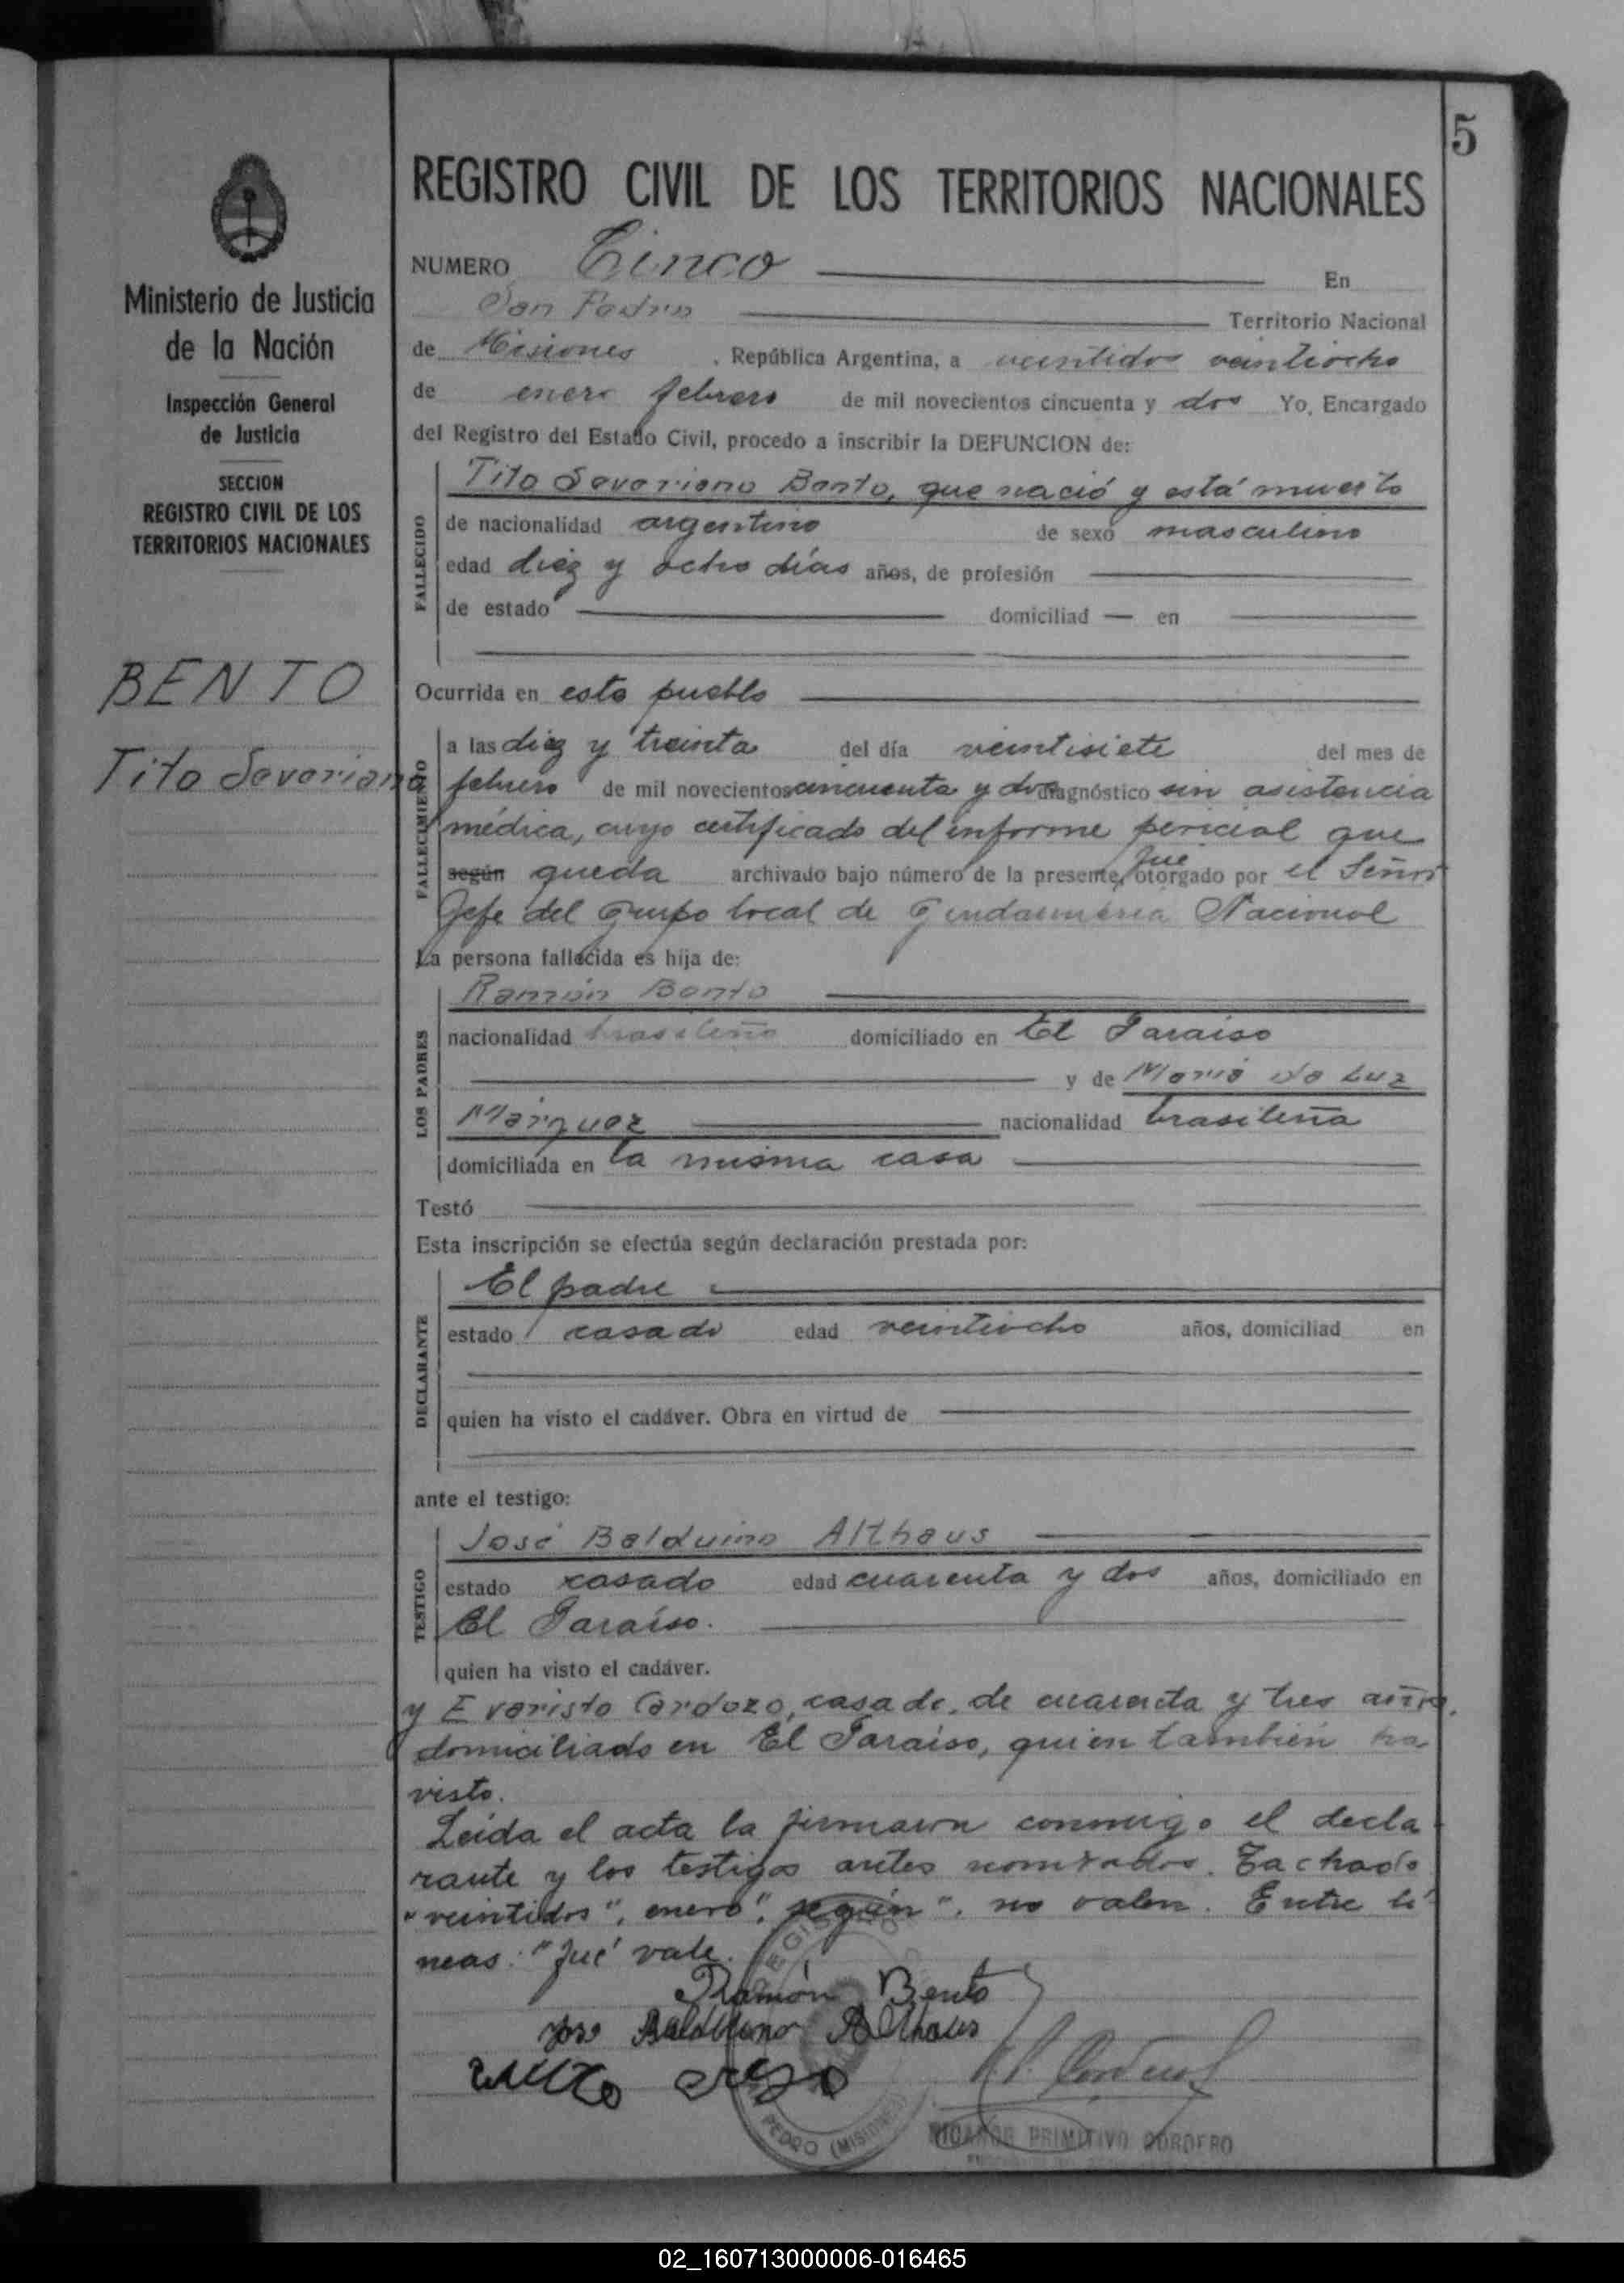 5
REGISTRO CIVIL DE LOS TERRITORIOS NACIONALES
Ministerio de Justicia
de la Nación
Inspección General
de Justicia
SECCION
REGISTRO CIVIL DE LOS
TERRITORIOS NACIONALES
BENTO
Tito Severiano
NUMERO Cinco En
San Pedro Territorio Nacional
de Misiones , República Argentina, a veintidos veintiocho
de enero febrero de mil novecientos cincuenta y dos Yo, Encargado
del Registro del Estado Civil, procedo a inscribir la DEFUNCION de:
FALLECIDO
Tito Severiano Bento, que nació y está muerto
de nacionalidad argentino de sexo masculino
edad diez y ocho días años, de profesión
de estado domiciliad en
Ocurrida en este pueblo
FALLECIMIENTO
a las diez y treinta del día veintisiete del mes de
febrero de mil novecientos cincuenta y dos diagnóstico sin asistencia
médica, cuyo certificado del informe pericial que
según queda archivado bajo número de la presente, fue otorgado por el Señor
Jefe del Grupo local de Gendarmeria Nacional
La persona fallecida es hija de:
LOS PADRES
Ramón Bento
nacionalidad brasileño domiciliado en El Paraiso
y de María da Luz
Márquez nacionalidad brasileña
domiciliada en la misma casa
Testó
Esta inscripción se efectúa según declaración prestada por:
DECLARANTE
El padre
estado casado edad veintiocho años, domiciliad en
quien ha visto el cadáver. Obra en virtud de
ante el testigo:
TESTIGO
José Balduino Althaus
estado casado edad cuarenta y dos años, domiciliado en
El Paraíso.
quien ha visto el cadáver.
y Evaristo Cardozo, casado, de cuarenta y tres años,
domiciliado en El Paraíso, quien también ha
visto.
Leída el acta la firmaron conmigo el decla
rante y los testigos antes nombrados. Tachado
"veintidos", enero", según". no valen. Entre lí
neas: "fué" vale.
Ramón Bento
Jose Balduino Althaus
PEDRO (MISIONES)
NICANOR PRIMITIVO CORDERO
02_160713000006-016465